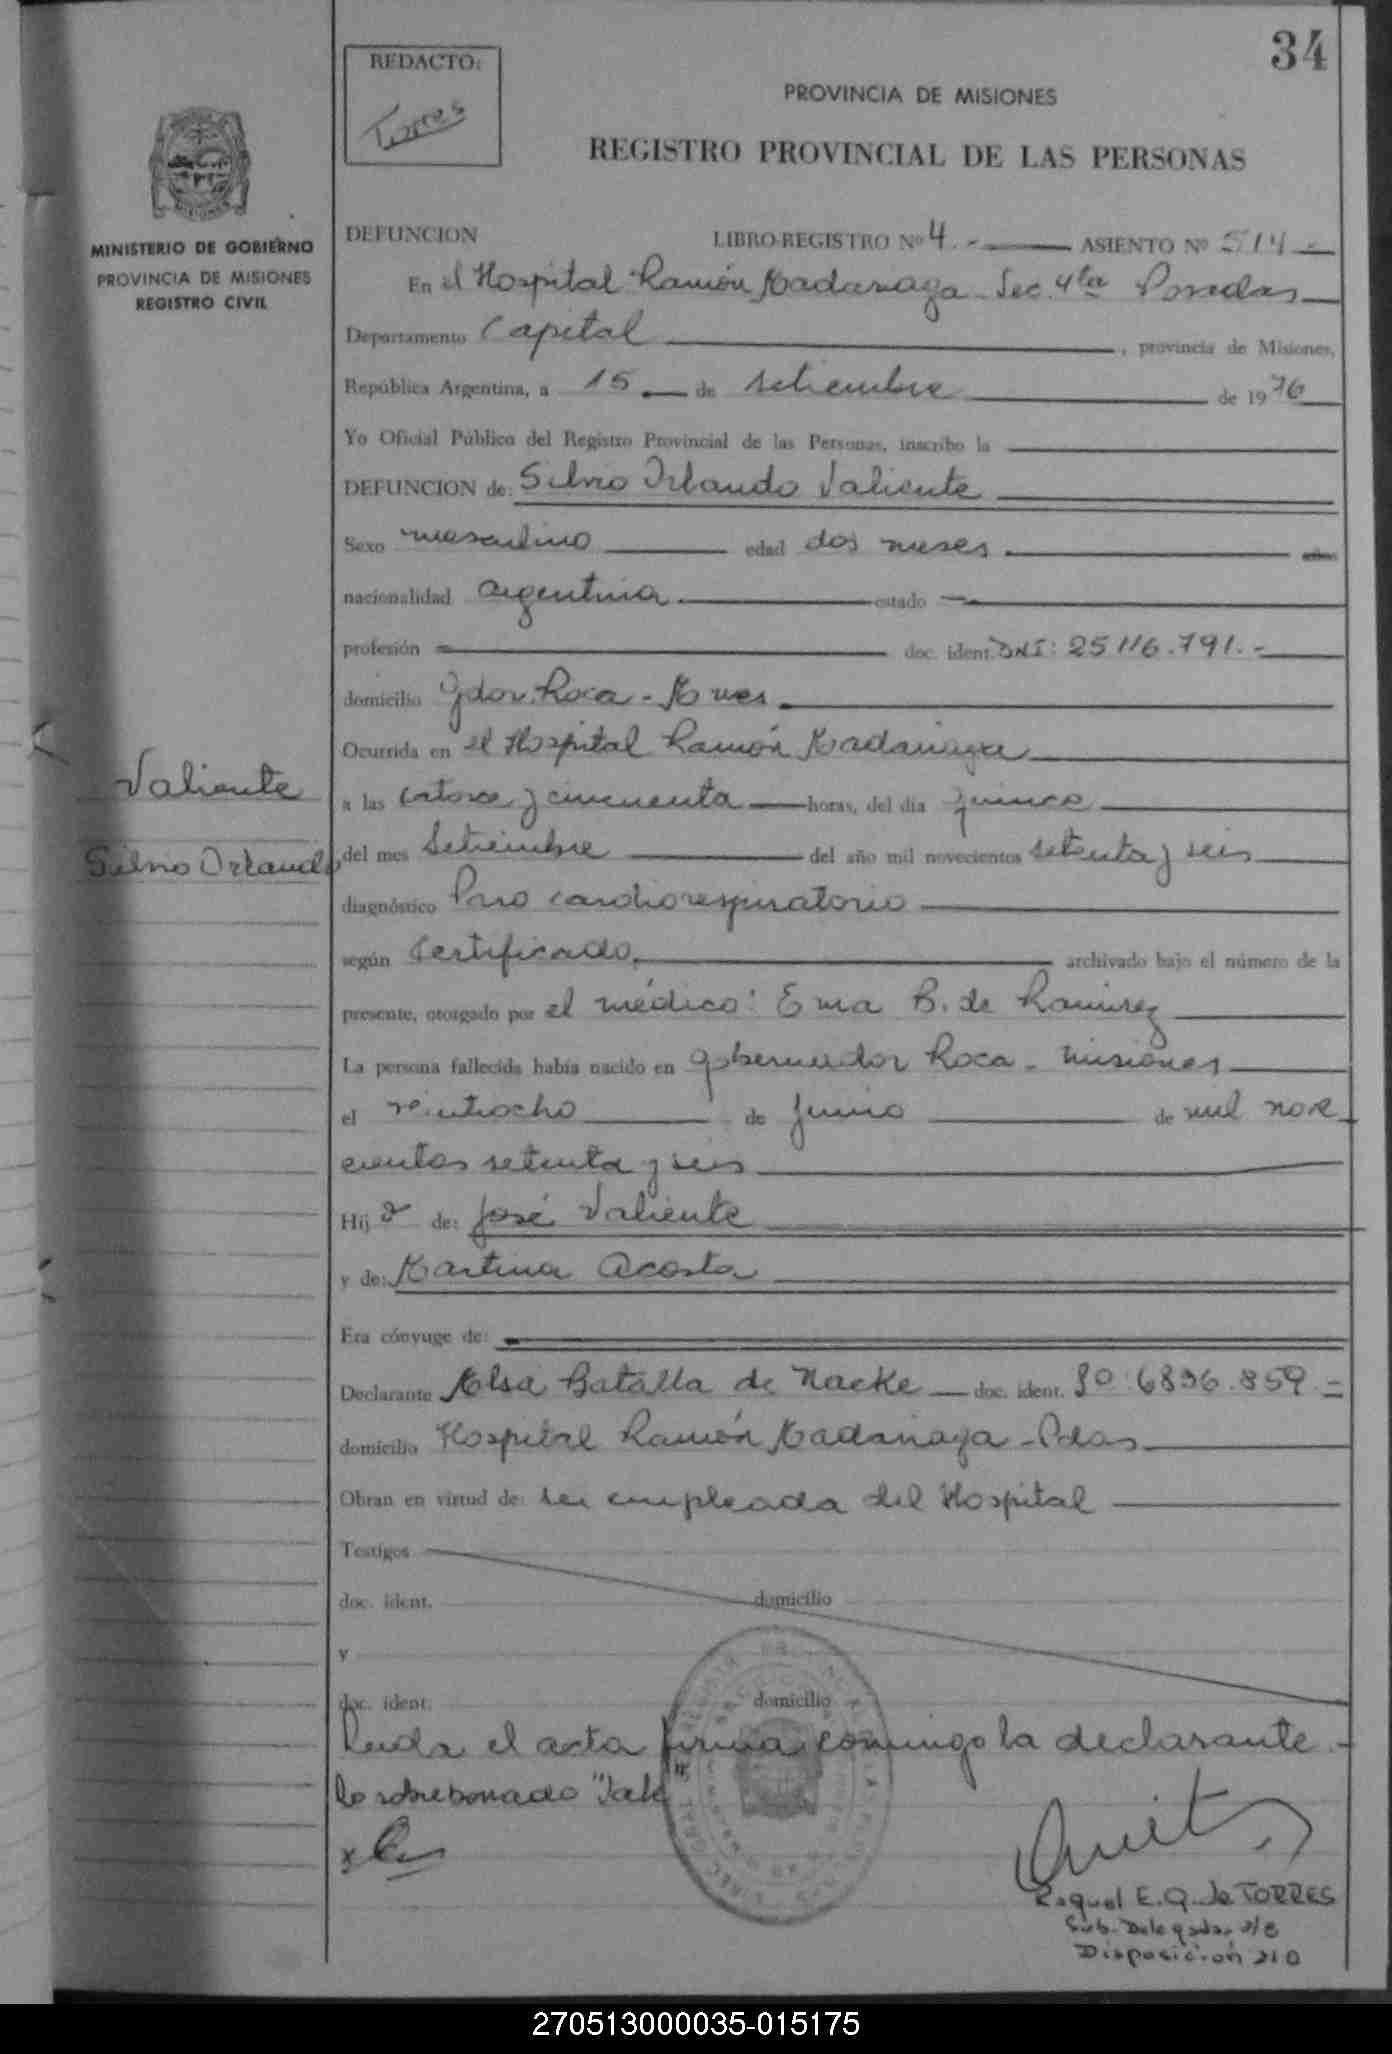 34
REDACTO:
Torres
PROVINCIA DE MISIONES
REGISTRO PROVINCIAL DE LAS PERSONAS
MINISTERIO DE GOBIERNO
PROVINCIA DE MISIONES
REGISTRO CIVIL
DEFUNCION LIBRO-REGISTRO Nº 4.- ASIENTO Nº 514-
En el Hospital Ramón Madariaga - Sec. 4ta Posadas
Departamento Capital, provincia de Misiones,
República Argentina, a 15 de setiembre de 1976
Yo Oficial Público del Registro Provincial de las Personas, inscribo la
DEFUNCION de: Silvio Orlando Valiente
Sexo masculino edad dos meses
nacionalidad argentina estado
profesión doc. ident. DNI: 25116.791.-
domicilio Gdor. Roca - Mnes
Ocurrida en el Hospital Ramón Madariaga
Valiente
a las catorce y cincuenta horas, del día quince
Silvio Orlando
del mes Setiembre del año mil novecientos setenta y seis
diagnóstico Paro cardiorespiratorio
según Certificado, archivado bajo el número de la
presente, otorgado por el médico: Ema B. de Ramirez
La persona fallecida había nacido en gobernador Roca - Misiones
el veintiocho de junio de mil nove
cientos setenta y seis
Hij o de: José Valiente
y de: Martina Acosta
Era cónyuge de:
Declarante Elsa Batalla de Nacke doc. ident. 6896.859.=
domicilio Hospital Ramón Madariaga - Pdas
Obran en virtud de: ser empleada del Hospital
Testigos
doc. ident. domicilio
y
doc. ident. domicilio
Leida el acta firma conmigo la declarante.-
lo sobreborrado
Raquel E. Q. de TORRES
Sub. Delegada a/c
Disposición 210
270513000035-015175